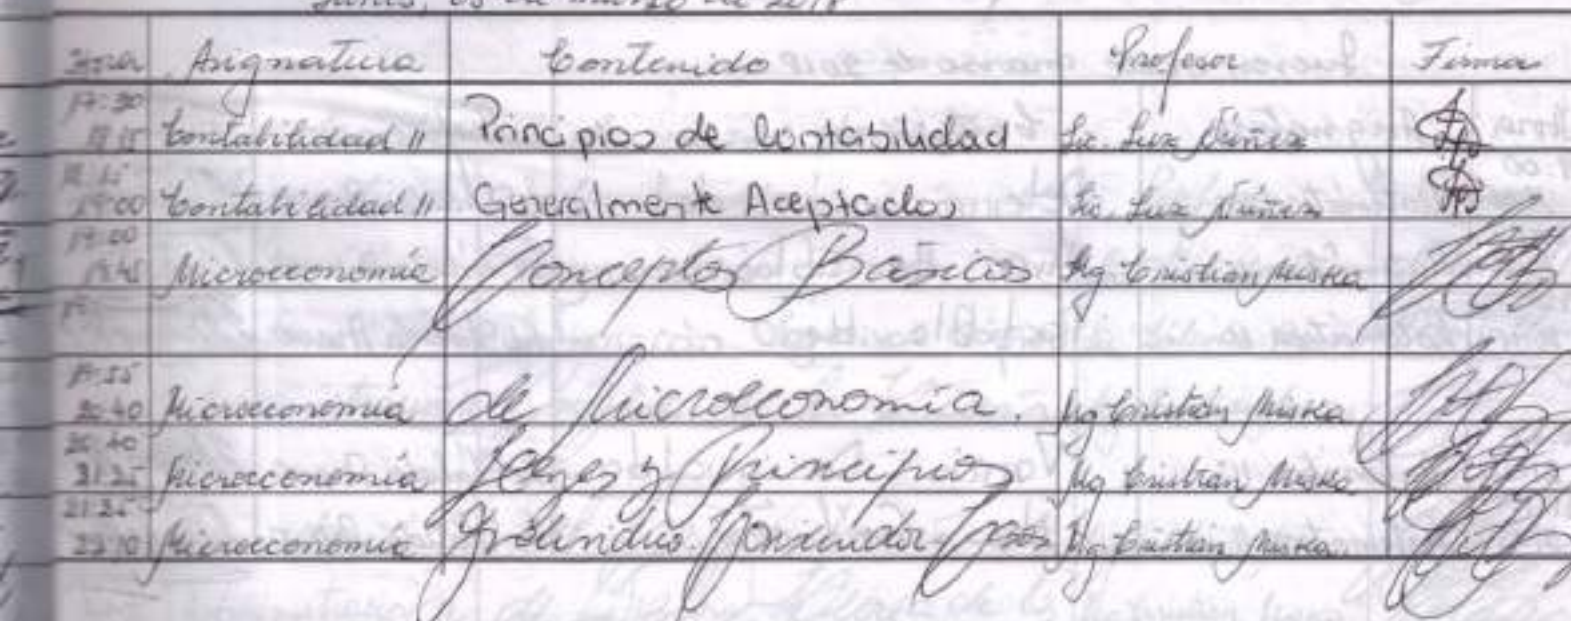 Lunes, 05 de marzo de 2018
Hora Asignatura Contenido Profesor Firma
17:30
18:15 Contabilidad II Principios de Contabilidad Lic. Luz Núñez
18:15
19:00 Contabilidad II Generalmente Aceptados Lic. Luz Núñez
19:00
19:45 Microeconomía Conceptos Básicos Mg Cristian Miska
19:55
20:40 Microeconomía de Microeconomía. Mg Cristian Miska
20:40
21:25 Microeconomía Leyes y Principios Mg Cristian Miska
21:25
22:10 Microeconomía Mg Cristian Miska